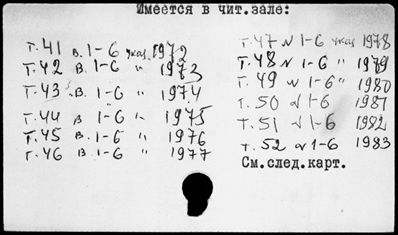 Имеется в чит.зале:
т.41 в. 1-6 указ. 1972
т.42 в. 1-6 " 1973
т.43 в. 1-6 " 1974
т.44 в. 1-6 " 1975
т.45 в. 1-6 " 1976
т.46 в. 1-6 " 1977
т.47 N 1-6 указ 1978
т.48 N 1-6 " 1979
т.49 N 1-6 " 1980
т.50 N 1-6 1981
т.51 N 1-6 1982
т.52 N 1-6 1983
См.след.карт.